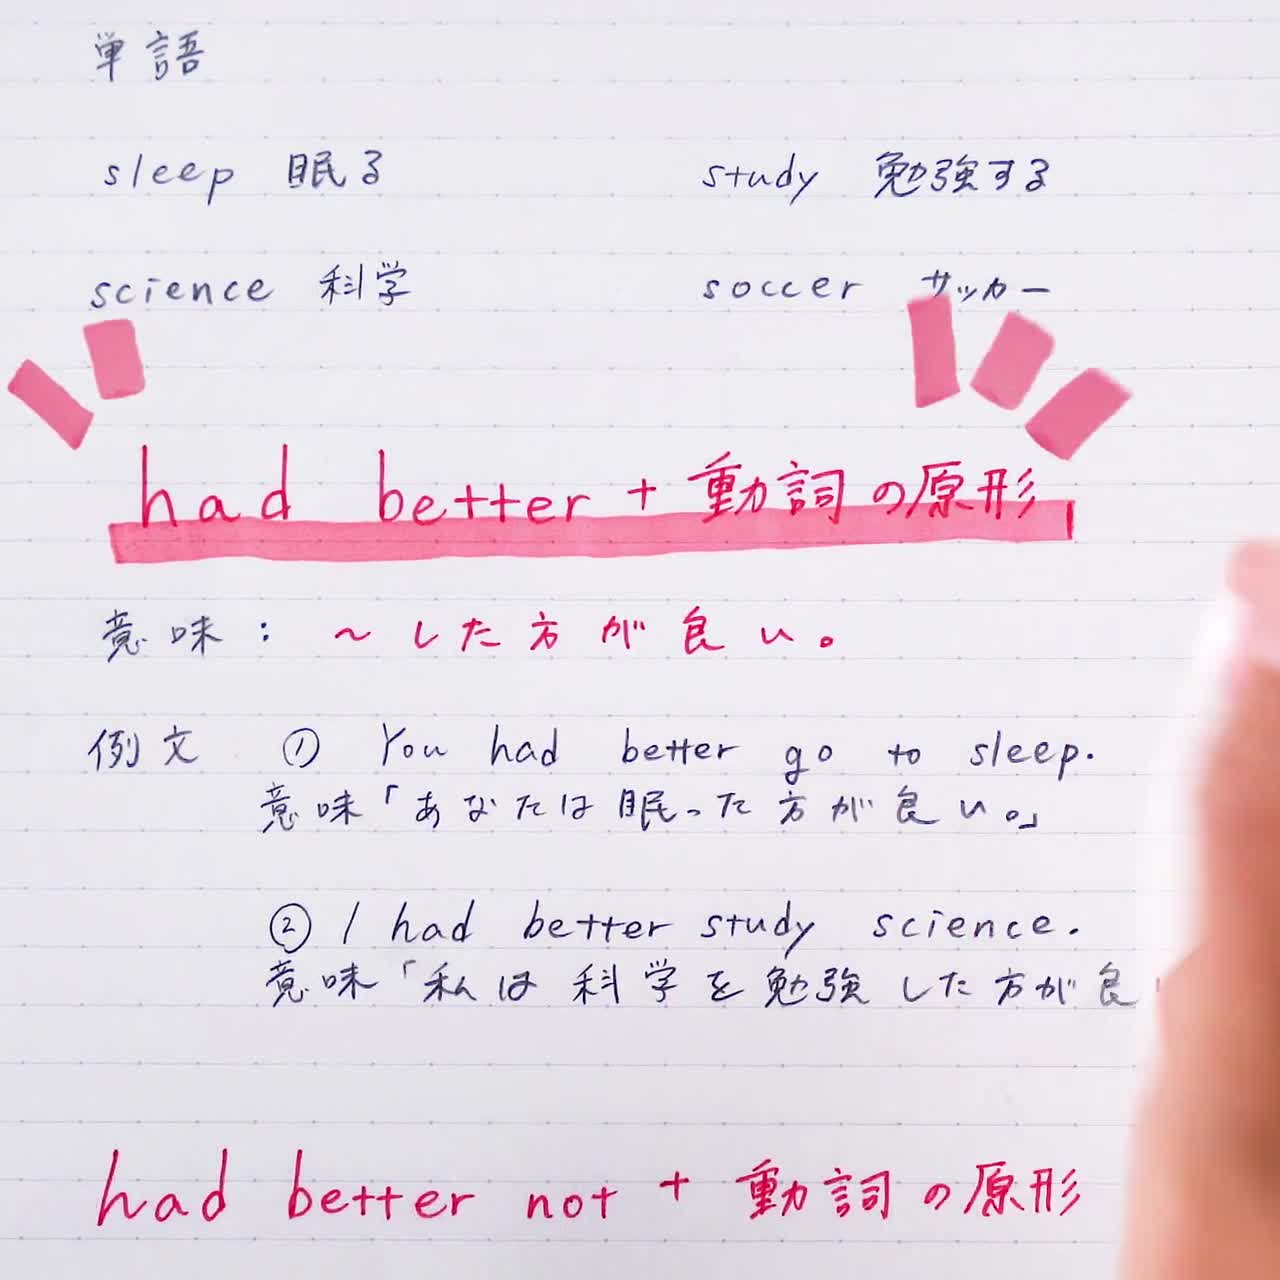 単語
sleep 眠る study 勉強する
science 科学 soccer サッカー
had better + 動詞の原形
意味: ~した方が良い。
例文 ① You had better go to sleep.
意味「あなたは眠った方が良い。」
② I had better study science.
意味「私は科学を勉強した方が良
had better not + 動詞の原形